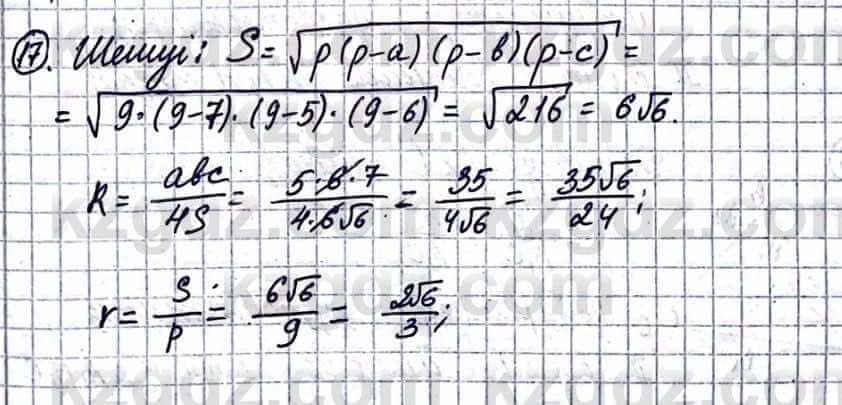 17. Шешуі: S = √(p(p-a)(p-b)(p-c)) =
= √(9·(9-7)·(9-5)·(9-6)) = √216 = 6√6.
R = abc/4S = 5·6·7/4·6√6 = 35/4√6 = 35√6/24;
r = S/p = 6√6/9 = 2√6/3;
kzgdz.com